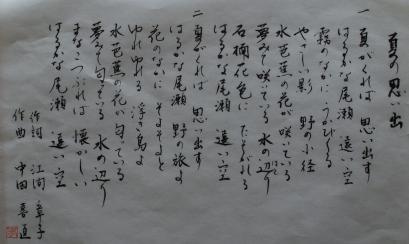 夏の思い出
一 夏がくれば 思い出す
はるかな尾瀬 遠い空
霧のなかに うかびくる
やさしい影 野の小径
水芭蕉の花が 咲いている
夢みて咲いている 水の辺り
石楠花色に たそがれる
はるかな尾瀬 遠い空
二 夏がくれば 思い出す
はるかな尾瀬 野の旅よ
花のなかに そよそよと
ゆれゆれる 浮き島よ
水芭蕉の花が 匂っている
夢みて匂っている 水の辺り
まなこつぶれば 懐かしい
はるかな尾瀬 遠い空
作詞 江間章子
作曲 中田喜直